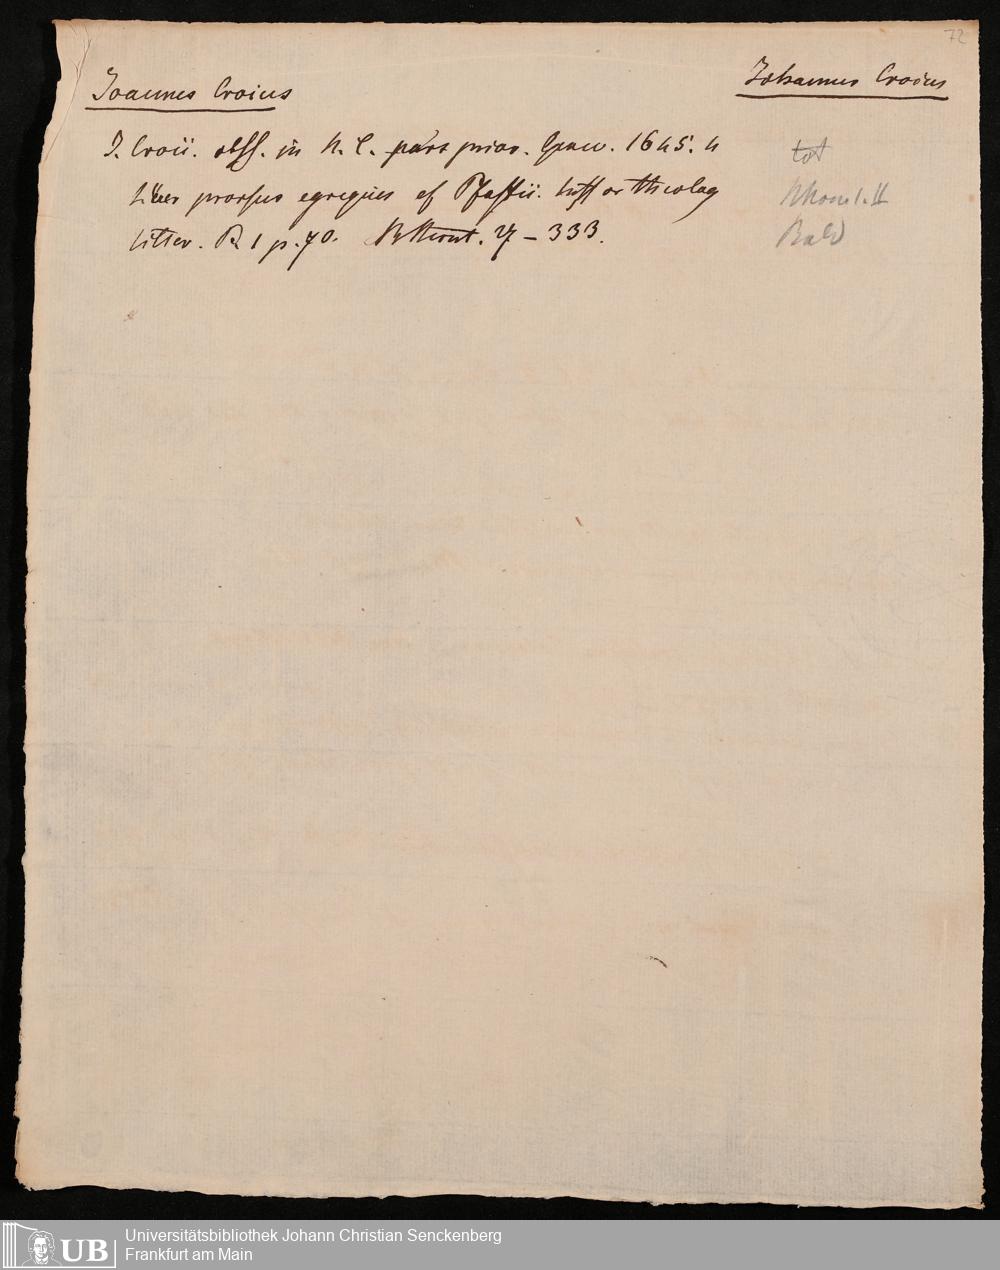 72
Joannes Croius
Johannes Croius
J. Croii. obss. in N. T. pars prior. Genev. 1645. 4
tot
liber prorsus egregius cf Pfaffii. hist theolog
litter. P. 1 p. 70. 4 – 333.
Bald
Universitätsbibliothek Johann Christian Senckenberg
UB
Frankfurt am Main